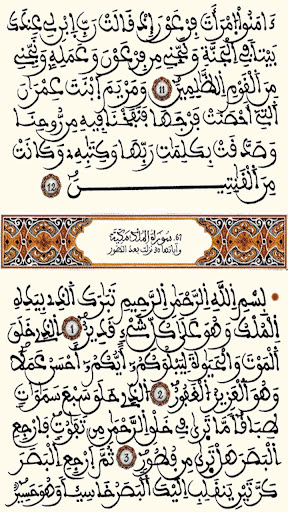 ءَامَنُوا اِمْرَأَتَ فِرْعَوْنَ إِذْ قَالَتْ رَبِّ اِبْنِ لِي عِندَكَ
بَيْتاً فِي اِلْجَنَّةِ وَنَجِّنِي مِن فِرْعَوْنَ وَعَمَلِهِ وَنَجِّنِي
مِنَ اَلْقَوْمِ اِلظَّٰلِمِينَ 11 وَمَرْيَمَ اَبْنَتَ عِمْرَٰنَ
اَلتِي أَحْصَنَتْ فَرْجَهَا فَنَفَخْنَا فِيهِ مِن رُّوحِنَا
وَصَدَّقَتْ بِكَلِمَٰتِ رَبِّهَا وَكِتَٰبِهِ وَكَانَتْ
مِنَ اَلْقَٰنِتِينَ 12
67 سورة الملك مكية
وآياتها 30 نزلت بعد الطور
بِسْمِ اِللَّهِ اِلرَّحْمَٰنِ اِلرَّحِيمِ تَبَٰرَكَ اَلذِي بِيَدِهِ
اِلْمُلْكُ وَهُوَ عَلَىٰ كُلِّ شَيْءٍ قَدِيرٌ 1 اِلذِي خَلَقَ
اَلْمَوْتَ وَالْحَيَوٰةَ لِيَبْلُوَكُمْ أَيُّكُمْ أَحْسَنُ عَمَلاً
وَهُوَ اَلْعَزِيزُ اُلْغَفُورُ 2 اُلذِي خَلَقَ سَبْعَ سَمَٰوَٰتٍ
طِبَاقاً مَّا تَرَىٰ فِي خَلْقِ اِلرَّحْمَٰنِ مِن تَفَٰوُتٍ فَارْجِعِ
اِلْبَصَرَ هَلْ تَرَىٰ مِن فُطُورٍ 3 ثُمَّ اَرْجِعِ اِلْبَصَرَ
كَرَّتَيْنِ يَنقَلِبِ اِلَيْكَ اَلْبَصَرُ خَاسِئاً وَهُوَ حَسِيرٌ